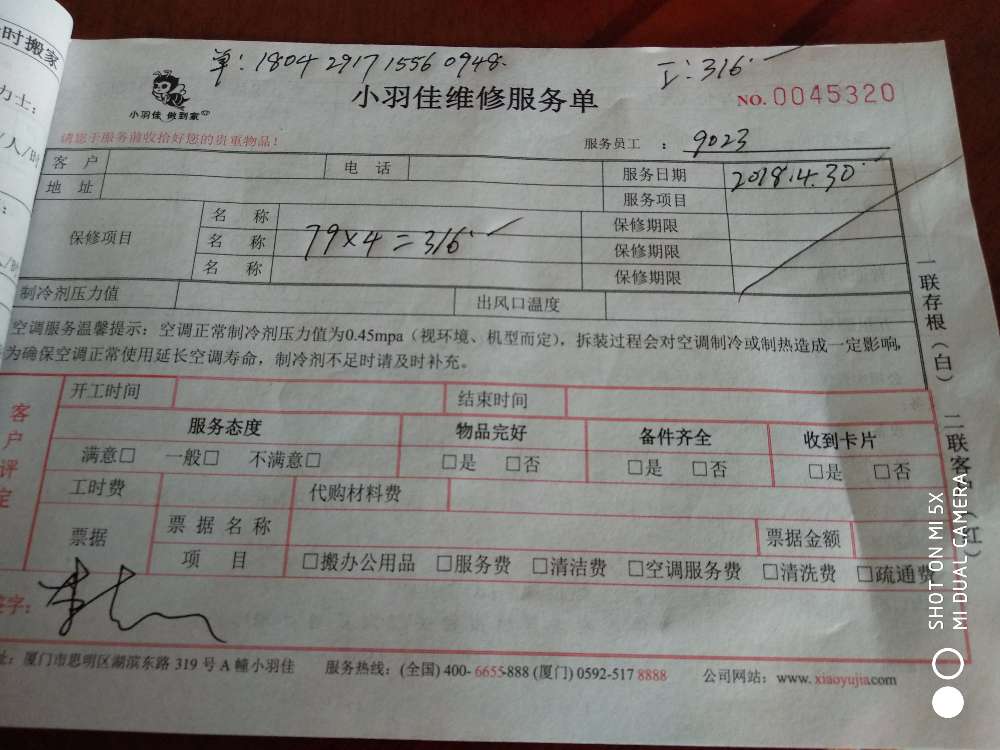 时搬家
力士：
/人/时
单：1804 2917 1556 0948.
工：316.
小羽佳 做到家
小羽佳维修服务单
NO. 0045320
请您于服务前收拾好您的贵重物品！
服务员工 ： 9023
客 户 电 话 服务日期 2018.4.30
地 址 服务项目
保修项目 名 称 保修期限
名 称 79×4=316. 保修期限
名 称 保修期限
制冷剂压力值 出风口温度
空调服务温馨提示：空调正常制冷剂压力值为0.45mpa（视环境、机型而定），拆装过程会对空调制冷或制热造成一定影响，
为确保空调正常使用延长空调寿命，制冷剂不足时请及时补充。
一联存根（白） 二联客户（红）
客户评定
开工时间 结束时间
服务态度 物品完好 备件齐全 收到卡片
满意□ 一般□ 不满意□ □是 □否 □是 □否 □是 □否
工时费 代购材料费
票据 票 据 名 称 票据金额
项 目 □搬办公用品 □服务费 □清洁费 □空调服务费 □清洗费 □疏通费
签字：
址：厦门市思明区湖滨东路 319 号 A 幢小羽佳 服务热线：(全国) 400-6655-888 (厦门) 0592-517 8888 公司网站：www. xiaoyujia.com
SHOT ON MI 5X
MI DUAL CAMERA